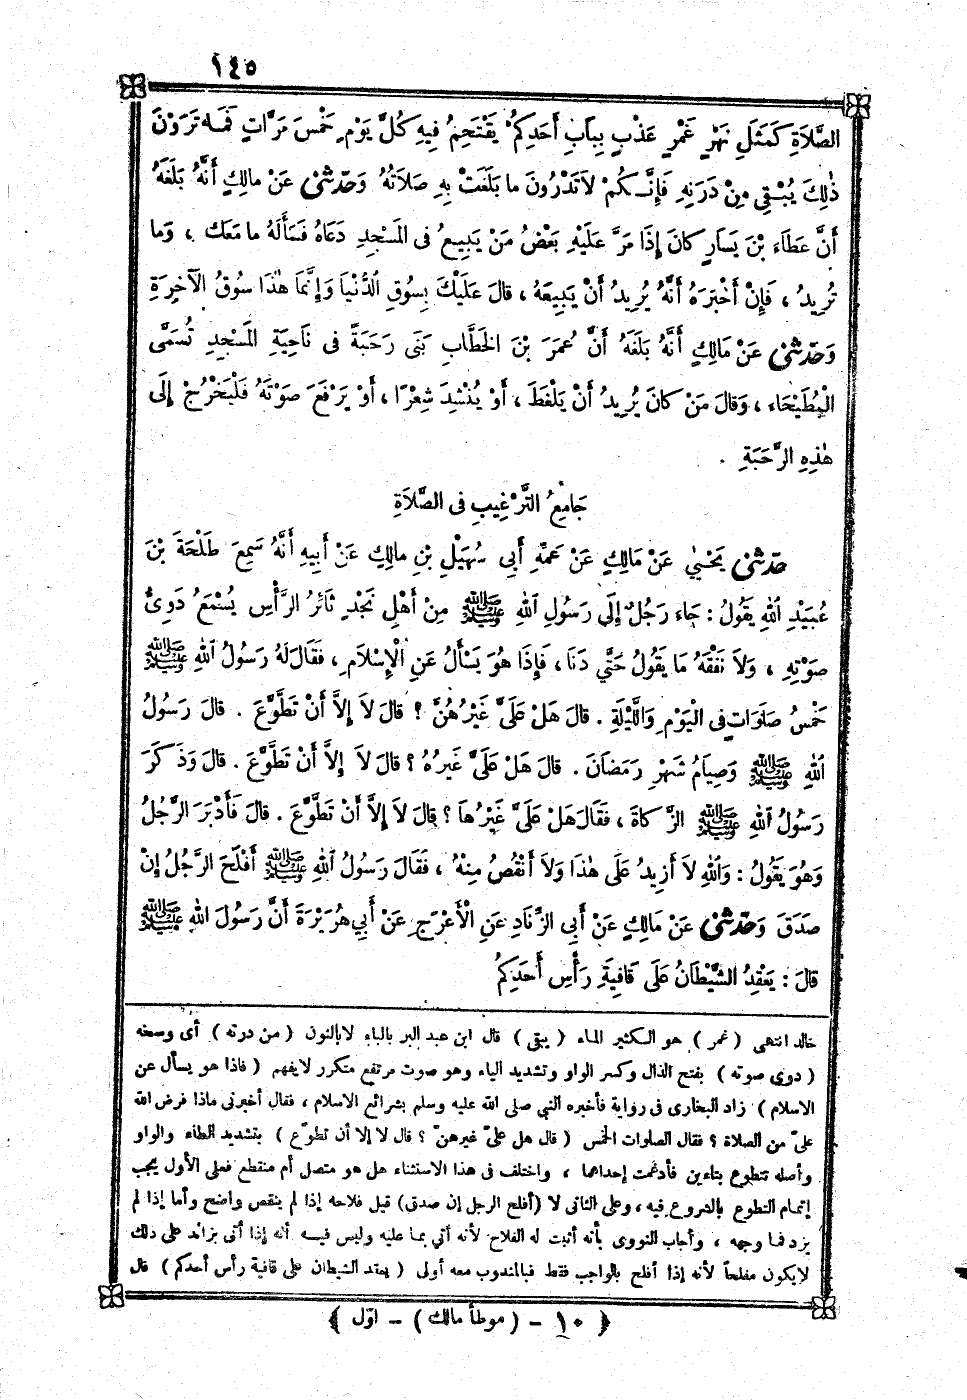 ١٤٥
الصَّلَاةِ كَمَثَلِ نَهْرٍ غَمْرٍ عَذْبٍ بِبَابِ أَحَدِكُمْ يَقْتَحِمُ فِيهِ كُلَّ يَوْمٍ خَمْسَ مَرَّاتٍ فَمَا تَرَوْنَ
ذٰلِكَ يُبْقِي مِنْ دَرَنِهِ فَإِنَّكُمْ لَا تَدْرُونَ ما بَلَغَتْ بِهِ صَلَاتُهُ وَحَدَّثَنِى عَنْ مالِكٍ أَنَّهُ بَلَغَهُ
أَنَّ عَطَاءَ بْنَ يَسَارٍ كانَ إِذَا مَرَّ عَلَيْهِ بَعْضُ مَنْ يَبِيعُ فى المَسْجِدِ دَعَاهُ فَسَأَلَهُ ما مَعَكَ ، وَما
تُرِيدُ ، فَإِنْ أَخْبَرَهُ أَنَّهُ يُرِيدُ أَنْ يَبِيعَهُ ، قالَ عَلَيْكَ بِسُوقِ الدُّنْيَا وَإِنَّمَا هٰذَا سُوقُ الآخِرَةِ
وَحَدَّثَنِى عَنْ مَالِكٍ أَنَّهُ بَلَغَهُ أَنَّ عُمَرَ بْنَ الخَطَّابِ بَنَى رَحَبَةً فى نَاحِيَةِ المَسْجِدِ تُسَمَّى
الْبُطَيْحَاء ، وَقالَ مَنْ كانَ يُرِيدُ أَنْ يَلْغَطَ ، أَوْ يُنْشِدَ شِعْرًا ، أَوْ يَرْفَعَ صَوْتَهُ فَلْيَخْرُجْ إِلَى
هٰذِهِ الرَّحَبَةِ .
جَامِعُ التَّرْغِيبِ فى الصَّلَاةِ
حَدَّثَنِى يَحْيٰ عَنْ مَالِكٍ عَنْ عَمِّهِ أَبِى سُهَيْلِ بْنِ مالِكٍ عَنْ أَبِيهِ أَنَّهُ سَمِعَ طَلْحَةَ بْنَ
عُبَيْدِ اللهِ يَقُولُ : جَاءَ رَجُلٌ إِلَى رَسُولِ اللهِ ﷺ مِنْ أَهْلِ نَجْدٍ ثَائِرُ الرَّأْسِ يُسْمَعُ دَوِىُّ
صَوْتِهِ ، وَلاَ نَفْقَهُ مَا يَقُولُ حَتَّى دَنَا ، فَإِذَا هُوَ يَسْأَلُ عَنِ الْإِسْلَامِ ، فَقَالَ لَهُ رَسُولُ اللهِ ﷺ
خَمْسُ صَلَوَاتٍ فى الْيَوْمِ وَاللَّيْلَةِ . قالَ هَلْ عَلَىَّ غَيْرُهُنَّ ؟ قالَ لاَ إِلاَّ أَنْ تَطَّوَّعَ . قالَ رَسُولُ
اللهِ ﷺ وَصِيَامُ شَهْرِ رَمَضَانَ . قالَ هَلْ عَلَىَّ غَيْرُهُ ؟ قالَ لاَ إِلاَّ أَنْ تَطَّوَّعَ . قالَ وَذَكَرَ
رَسُولُ اللهِ ﷺ الزَّكاةَ ، فَقَالَ هَلْ عَلَىَّ غَيْرُهَا ؟ قالَ لاَ إِلاَّ أَنْ تَطَّوَّعَ . قالَ فَأَدْبَرَ الرَّجُلُ
وَهُوَ يَقُولُ : وَاللهِ لاَ أَزِيدُ عَلَى هٰذَا وَلاَ أَنْقُصُ مِنْهُ ، فَقَالَ رَسُولُ اللهِ ﷺ أَفْلَحَ الرَّجُلُ إِنْ
صَدَقَ وَحَدَّثَنِى عَنْ مَالِكٍ عَنْ أَبِى الزِّنَادِ عَنِ الْأَعْرَجِ عَنْ أَبِي هُرَيْرَةَ أَنَّ رَسُولَ اللهِ ﷺ
قالَ : يَعْقِدُ الشَّيْطَانُ عَلَى قَافِيَةِ رَأْسِ أَحَدِكُمْ
خالد انتهى ( غمر ) هو الكثير الماء ( يبقى ) قال ابن عبد البر بالباء لا بالنون ( من درنه ) أى وسخه
( دوى صوته ) بفتح الدال وكسر الواو وتشديد الياء وهو صوت مرتفع متكرر لا يفهم ( فاذا هو يسأل عن
الاسلام ) زاد البخارى فى رواية فأخبره النبي صلى الله عليه وسلم بشرائع الاسلام ، فقال أخبرنى ماذا فرض الله
علىّ من الصلاة ؟ فقال الصلوات الخمس ( قال هل علىّ غيرهنّ ؟ قال لا إلا أن تطوّع ) بتشديد الطاء والواو
وأصله تتطوع بتاءين فأدغمت إحداهما ، واختلف فى هذا الاستثناء هل هو متصل أم منقطع فعلى الأول يجب
إتمام التطوع بالشروع فيه ، وعلى الثانى لا (أفلح الرجل إن صدق) قيل فلاحه إذا لم ينقص واضح وأما إذا لم
يزد فما وجهه ، وأجاب النووى بأنه أثبت له الفلاح لأنه أتى بما عليه وليس فيه أنه إذا أتى بزائد على ذلك
لا يكون مفلحاً لأنه إذا أفلح بالواجب فقط فبالمندوب معه أولى ( يعقد الشيطان على قافية رأس أحدكم ) قال
﴿ ١٠ - ( موطأ مالك ) - أوّل ﴾